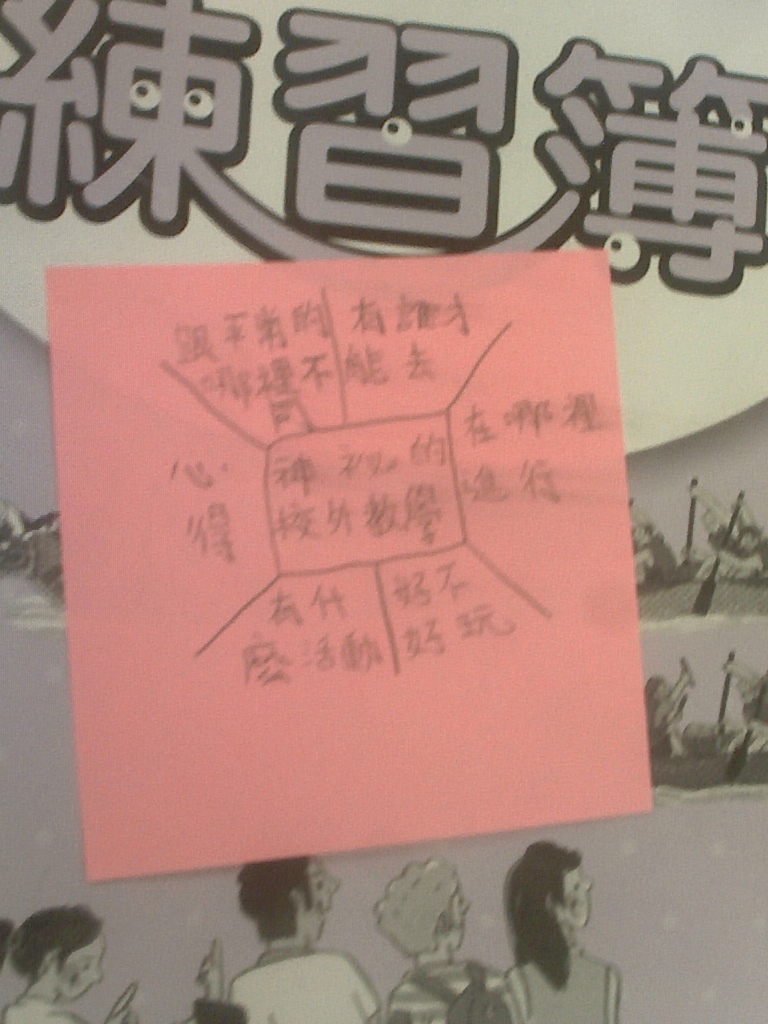 練習簿
跟平常的
哪裡不
同
有誰才
能去
在哪裡
進行
心
得
神祕的
校外教學
有什
麼活動
好不
好玩